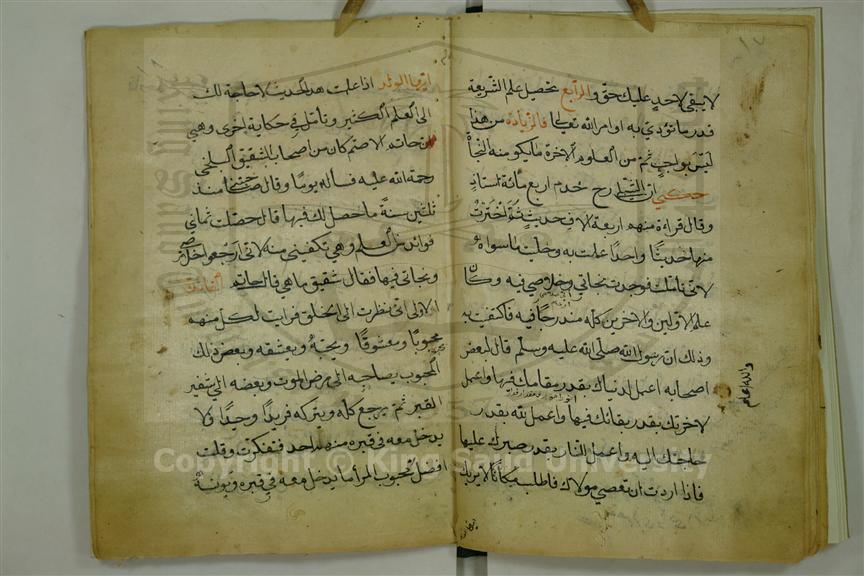 لا يبقى لاحد عليك حق والرابع تحصيل علم الشريعة
قدر ما تؤدي به اوامر الله تعالى فالزيادة من هذا
ليس بواجب ثم من العلوم الآخرة ما يكو منه النجاة
حكي ان الشبلي رح خدم اربع مائة استاذ
وقال قراءة منهم اربعة الاف حديث ثم اخترت
منها حديثا واحدا عملت به وخليت ما سواه
لاني تأملت فوجدت نجاتي وخلاصي فيه وكان
علم الاولين والاخرين كله مندرجا فيه فاكتفيت به
وذلك ان رسول الله صلى الله عليه وسلم قال لبعض
اصحابه اعمل لدنياك بقدر مقامك فيها واعمل
لاخرتك بقدر بقائك فيها واعمل لله بقدر
حاجتك اليه واعمل النار بقدر صبرك عليها
فاذا اردت ان تعصي مولاك فاطلب مكانا لا يريك
والله اعلم
ايها الولد اذا علمت هذا الحديث لا حاجة لك
الى العلم الكثير وتأمل في حكاية اخرى وهي
ان حاتم الاصم كان من اصحاب الشقيق البلخي
رحمة الله عليه فسأله يوما وقال صاحبتني منذ
ثلثين سنة ما حصل لك فيها قال حصلت ثماني
فوائد من العلم وهي تكفيني منه لاني ارجو اخلاصي
ونجاتي فيها فقال شقيق ما هي قال حاتم الفائدة
الاولى اني نظرت الى الخلق فرايت لكل منهم
محبوبا ومعشوقا ويحبه ويعشقه وبعض ذلك
المحبوب يصاحبه الى مرض الموت وبعضه الى شفير
القبر ثم يرجع كله ويتركه فريدا وحيدا ولا
يدخل معه في قبره منهم احد فتفكرت وقلت
افضل محبوب المرأ ما يدخل معه في قبره ويونسه
Copyright © King Saud University